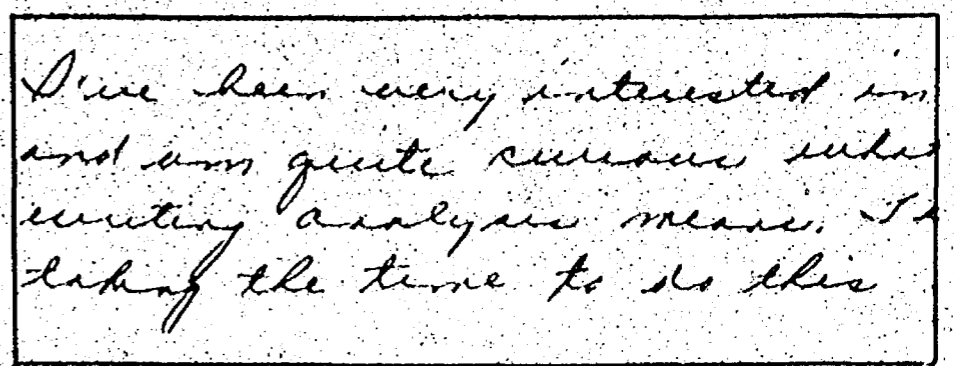 I've been very interested in
and am quite curious wha
writing analysis means. Th
taking the time to do this